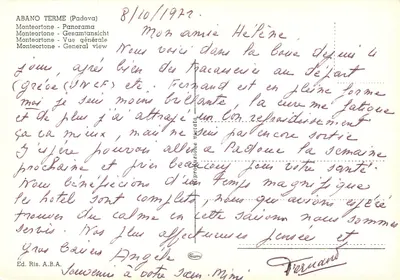 ABANO TERME (Padova)
Monteortone - Panorama
Monteortone - Gesamtansicht
Monteortone - Vue générale
Monteortone - General view
8/10/1972.
Mon amie Hélène.
Nous voici dans la boue depuis 4
jours, après bien des tracasseries au départ
(grève (SNCF) etc. Fernand est en pleine forme
moi je suis moins brillante, la cure me fatigue
et de plus j'ai attrapé un bon refroidissement
ça va mieux, mais ne suis pas encore sortie
J'espère pouvoir aller à Padoue la semaine
prochaine et prie beaucoup pour votre santé.
Nous bénéficions d'un temps magnifique
les hotel sont complets, nous qui avions espéré
trouver du calme en cette saison nous sommes
servis. Nos plus affectueuses pensées et
gros baisers Angèle
Fernand
Souvenir à votre sœur Mimi
Ed. Ris. A.B.A.